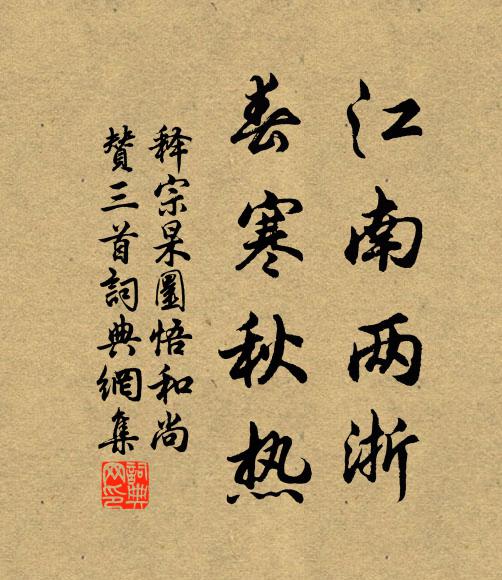 江南两浙
春寒秋热
释宗杲圜悟和尚
赞三首詞典網集
詞典网印